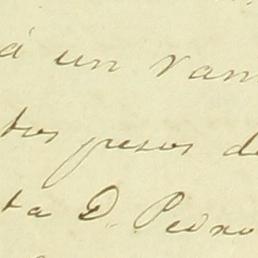 á un van
tos pesos de
ta D. Pedro